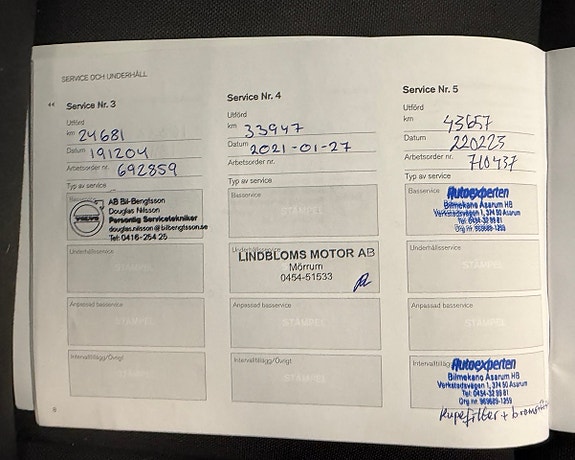 SERVICE OCH UNDERHÅLL
Service Nr. 3
Utförd
km 24681
Datum 191204
Arbetsorder nr. 692859
Typ av service
Basservice
VOLVO
AB Bil-Bengtsson
Douglas Nilsson
Personlig Servicetekniker
douglas.nilsson@bilbengtsson.se
Tel: 0416-254 25
Underhållsservice
STÄMPEL
Anpassad basservice
STÄMPEL
Intervalltillägg/Övrigt
STÄMPEL
8
Service Nr. 4
Utförd
km 33947
Datum 2021-01-27
Arbetsorder nr.
Typ av service
Basservice
STÄMPEL
Underhållsservice
LINDBLOMS MOTOR AB
Mörrum
0454-51533
Anpassad basservice
STÄMPEL
Intervalltillägg/Övrigt
STÄMPEL
Service Nr. 5
Utförd
km 43657
Datum 220223
Arbetsorder nr. 710437
Typ av service
Basservice
Autoexperten
Bilmekano Asarum HB
Verkstadsvägen 1, 374 50 Asarum
Tel: 0454-32 99 81
Org nr. 969689-1259
Underhållsservice
STÄMPEL
Anpassad basservice
STÄMPEL
Intervalltillägg
Autoexperten
Bilmekano Asarum HB
Verkstadsvägen 1, 374 50 Asarum
Tel: 0454-32 99 81
Org nr. 969689-1259
kupefilter +